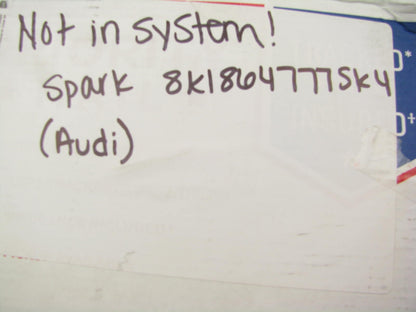 Not in system!
Spark 8K1864777SK4
(Audi)